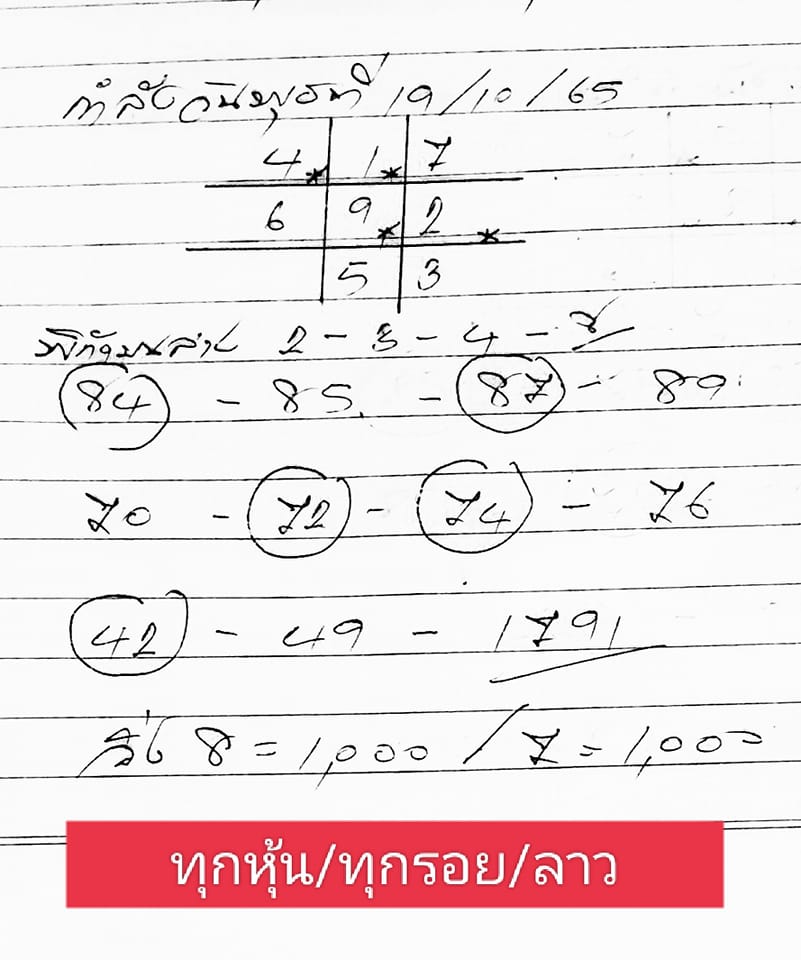 กำลังวันพุธที่ 19/10/65
4 * 1 * 7
6 9 * 2 *
5 3
2 - 3 - 4 - 8
84 - 85 - 87 - 89
70 - 72 - 74 - 76
42 - 49 - 1791
วิ่ง 8 = 1,000 / 7 = 1,000
ทุกหุ้น/ทุกรอย/ลาว